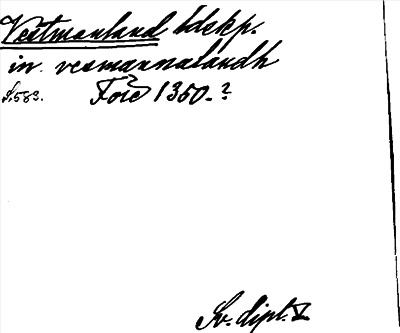 Vestmanland ldskp.
in vesmannalandh
S. 583. Före 1350.?
Sv. dipl. I